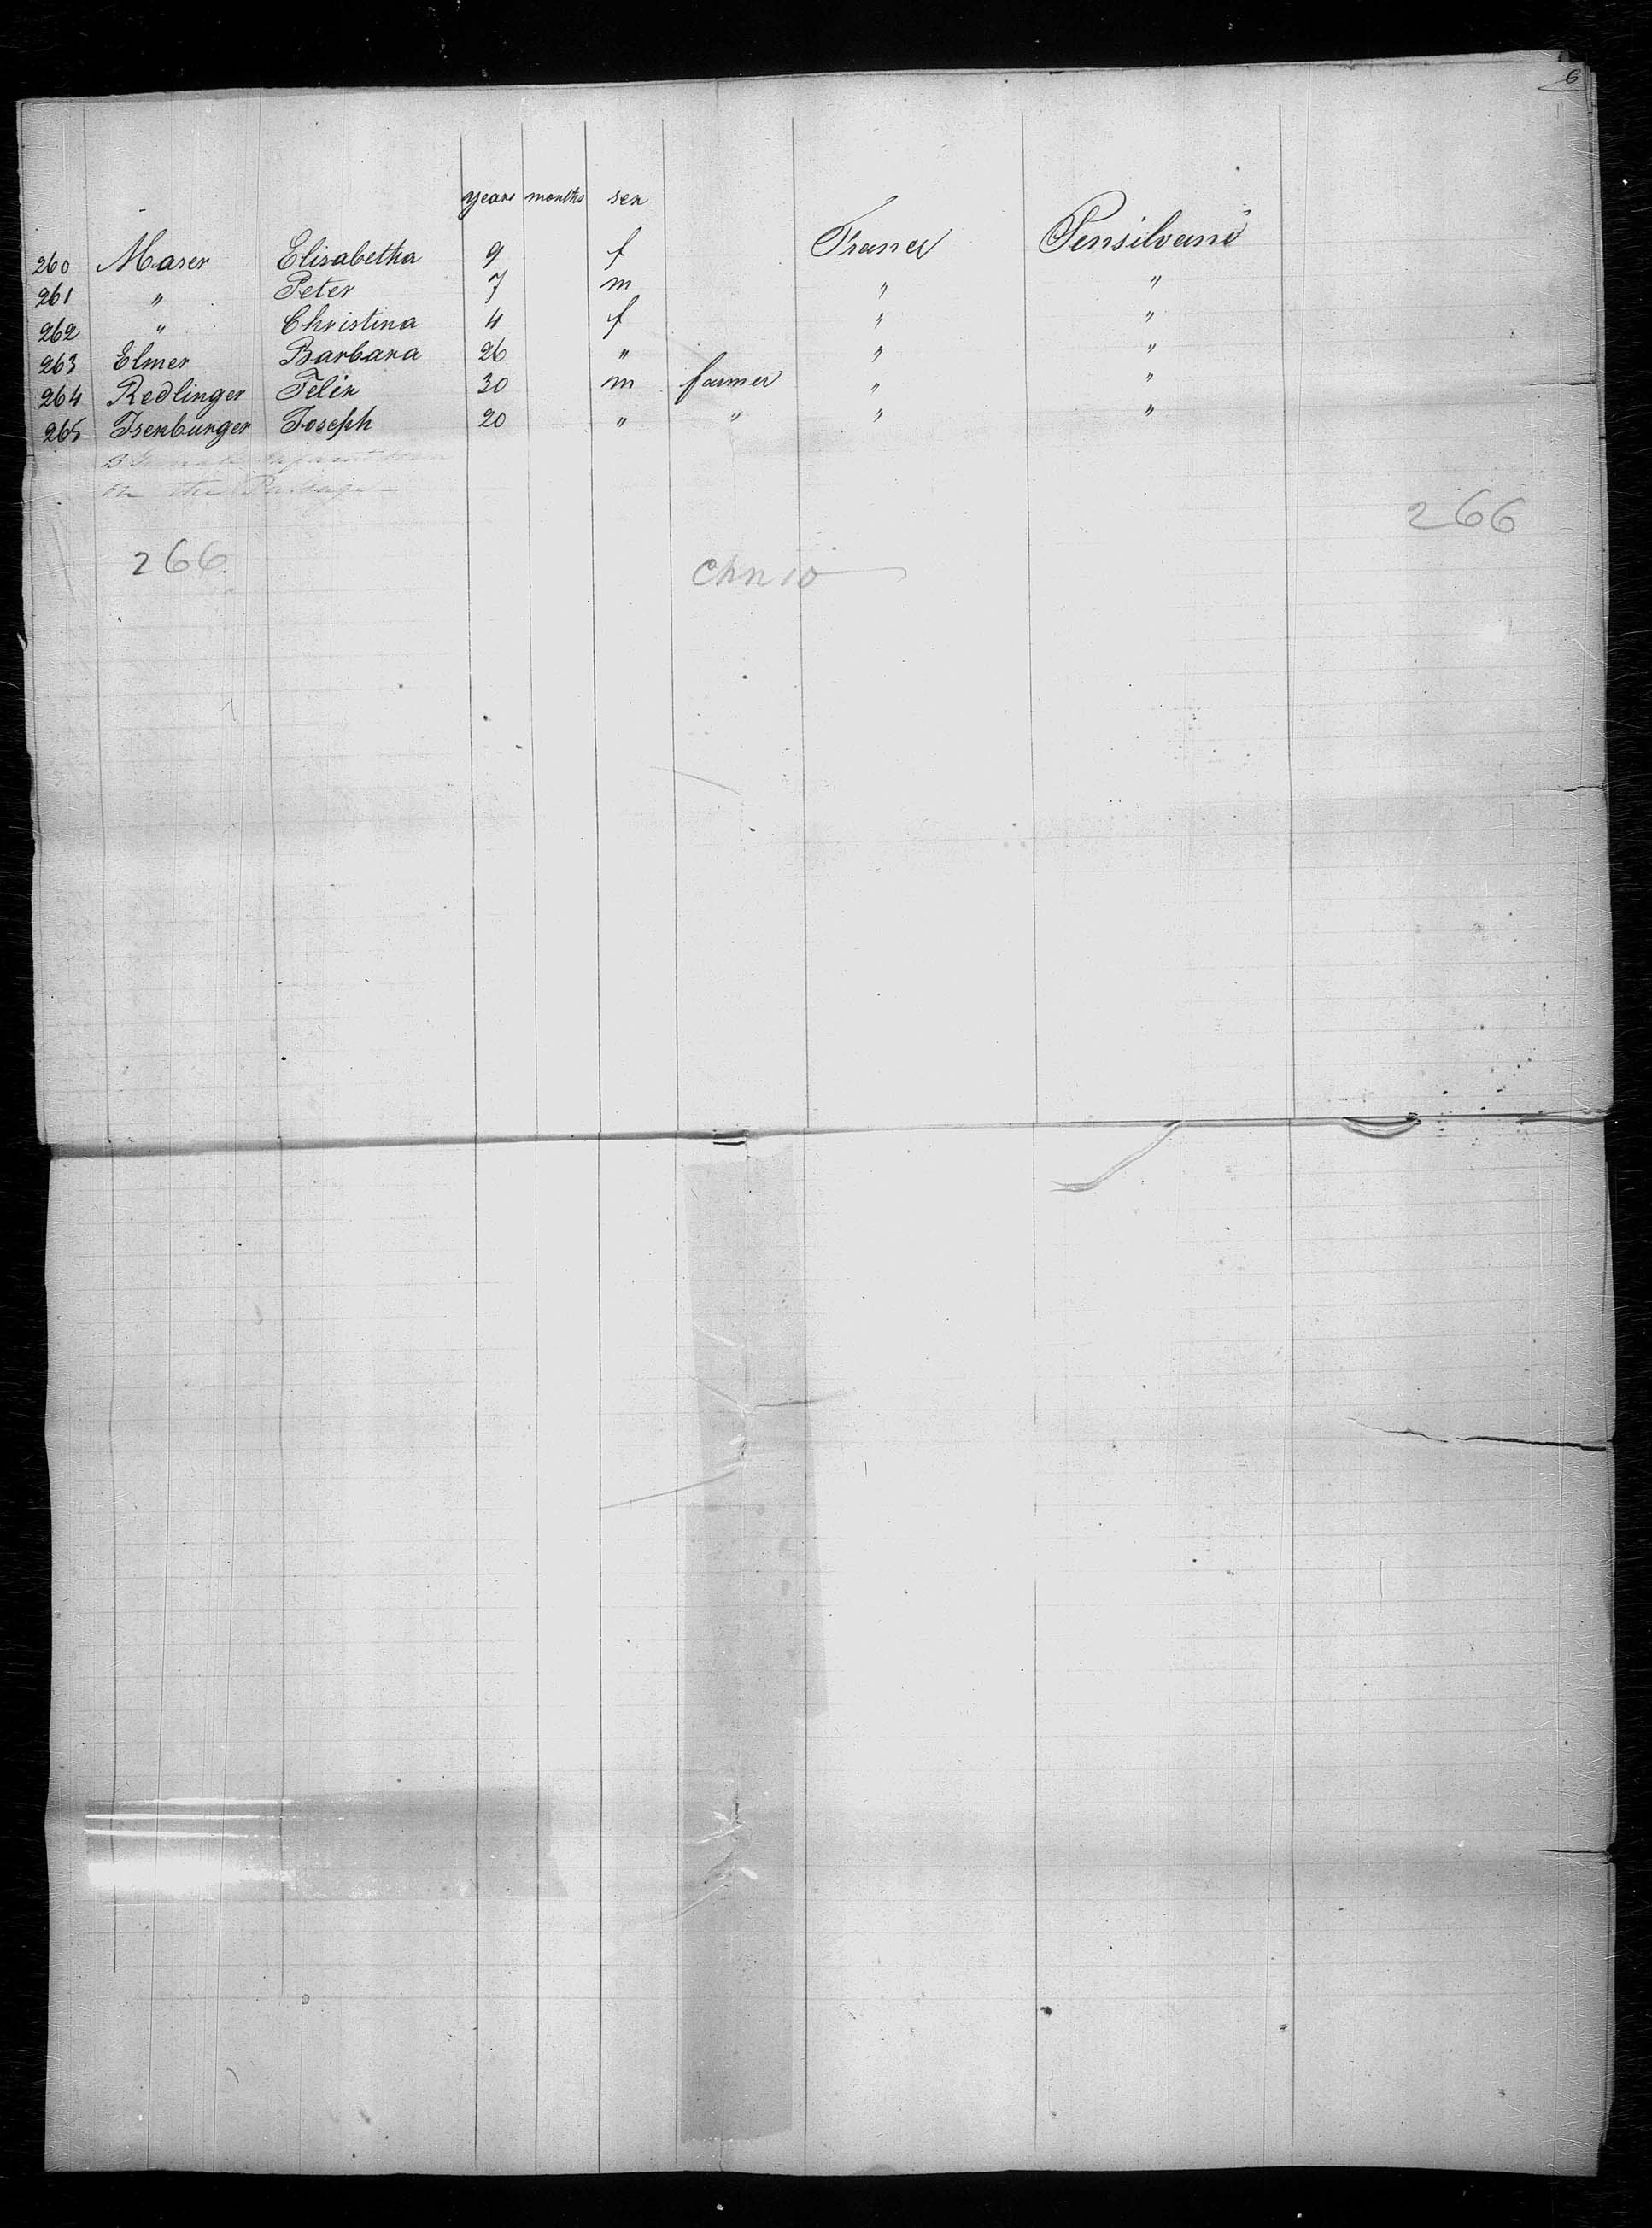 6
years months sex
260 Maser Elisabetha 9 f France Pensilvani
261 " Peter 7 m " "
262 " Christina 4 f " "
263 Elmer Barbara 26 " " "
264 Redlinger Felix 30 m farmer " "
265 Isenburger Joseph 20 " " " "
Female Infant born
on the Passage
266
266 Chn 10